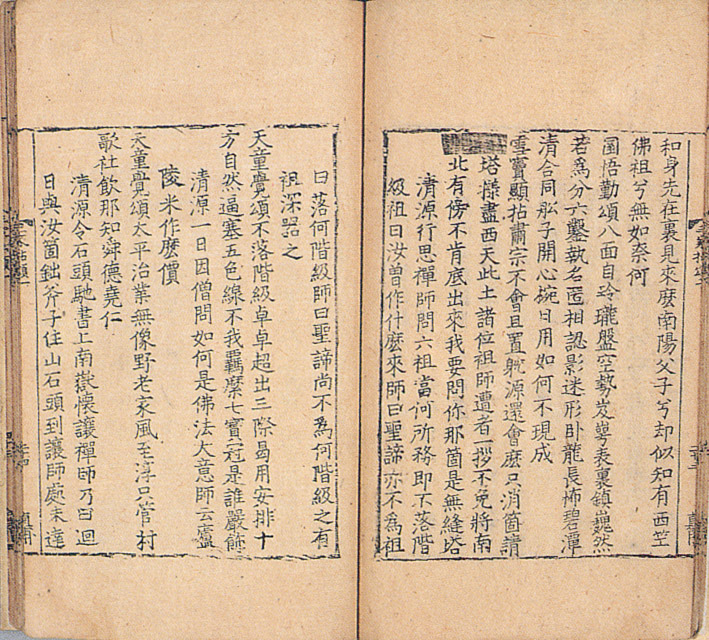 和身先在裏見來麽南陽父子兮却似知有西竺
佛祖兮無如奈何
圜悟勤頌八面自玲瓏盤空勢岌嶪表裏鎮巍然
若爲分六鑿執名匿相認影迷形卧龍長怖碧潭
清合同舩子開心椀日用如何不現成
雪竇顯拈肅宗不會且置躭源還會麽只消箇請
塔㨾盡西天此土諸位祖師遭者一拶不免將南
北有傍不肯底出來我要問你那箇是無縫塔
清源行思禪師問六祖當何所務即不落階
級祖曰汝曽作什麽來師曰聖諦亦不爲祖
曰落何階級師曰聖諦尚不爲何階級之有
祖深器之
天童覺頌不落階級卓卓超出三際曷用安排十
方自然逼塞五色線不我羈縻七寶冠是誰嚴飾
清源一日因僧問如何是佛法大意師云廬
陵米作麽價
天童覺頌太平治業無像野老家風至淳只管村
歌社飲那知舜德堯仁
清源令石頭馳書上南嶽懷讓禪師乃曰迴
日與汝箇鈯斧子住山石頭到讓師處未達